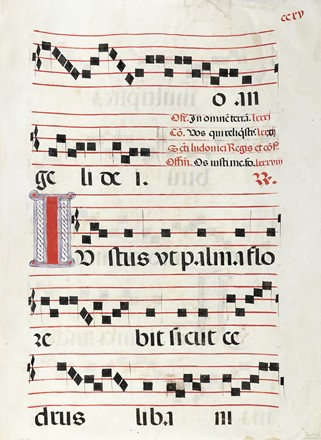 ccxv
o .an
Off. In omnē terrā. lxxxi
Cō. Vos qui reliqistis. lxxxj
S cti ludouici Regis et cōf.
Offm. Os iusti me. fo. lxxxviij
ge li oe i.
IU stus vt palma flo
re bit sicut ce
drus liba ni